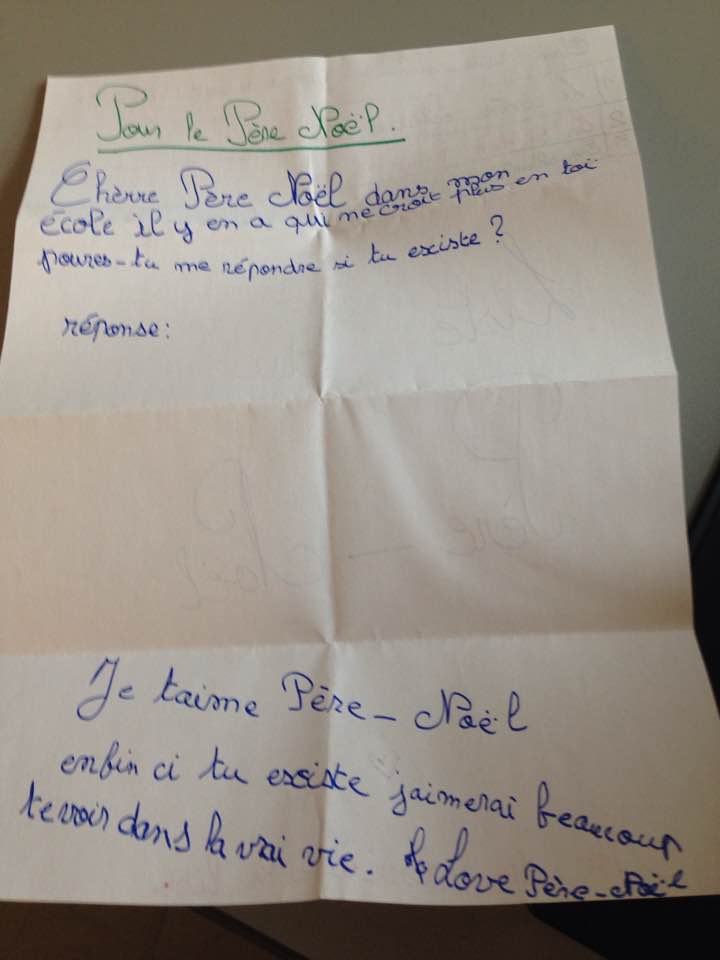 Pour le Père Noël.
Chèrre Père Noël dans mon
école il y en a qui ne croit plus en toi
poures-tu me répondre si tu existe ?
réponse:
Je taime Père-Noël
enfin ci tu existe jaimerai beaucoup
te voir dans la vrai vie. Love Père-Noël